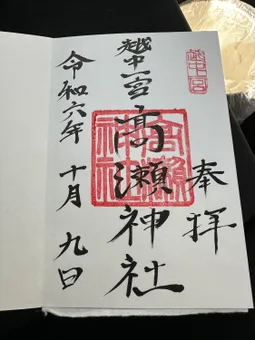 越中一宮
奉拝
越中一宮高瀬神社
高瀬神社
令和六年十月九日